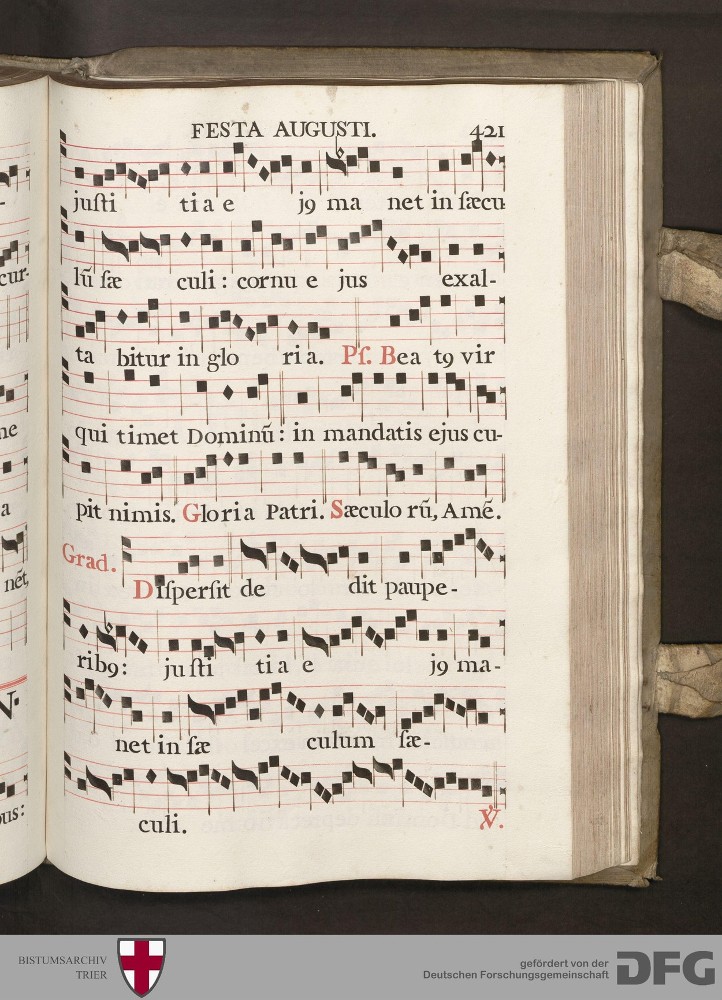 FESTA AUGUSTI. 421
juſti tia e j9 ma net in ſæcu
lū ſæ culi: cornu e jus exal-
ta bitur in glo ria. Pſ. Bea t9 vir
qui timet Dominū: in mandatis ejus cu-
pit nimis. Gloria Patri. Sæculo rū, Amē.
Grad. Diſperſit de dit paupe-
rib9: juſti tia e j9 ma-
net in ſæ culum ſæ-
culi. ℣.
cur-
ne
a
nēt,
V.
ous:
BISTUMSARCHIV
TRIER
gefördert von der
Deutschen Forschungsgemeinschaft
DFG